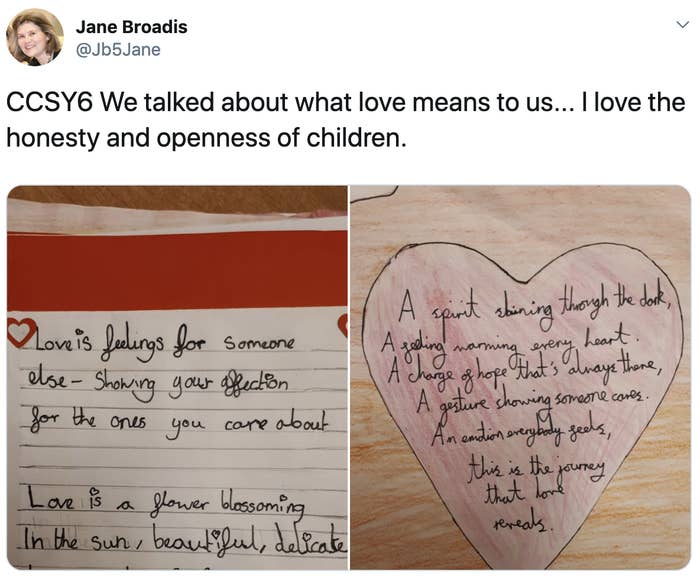 Jane Broadis
@Jb5Jane
CCSY6 We talked about what love means to us... I love the
honesty and openness of children.
Love is feelings for someone
else - Showing your affection
for the ones you care about
Love is a flower blossoming
In the sun, beautiful, delicate
A spirit shining through the dark,
A feeling warming every heart.
A charge of hope that's always there,
A gesture showing someone cares.
An emotion everybody feels,
this is the journey
that love
reveals.